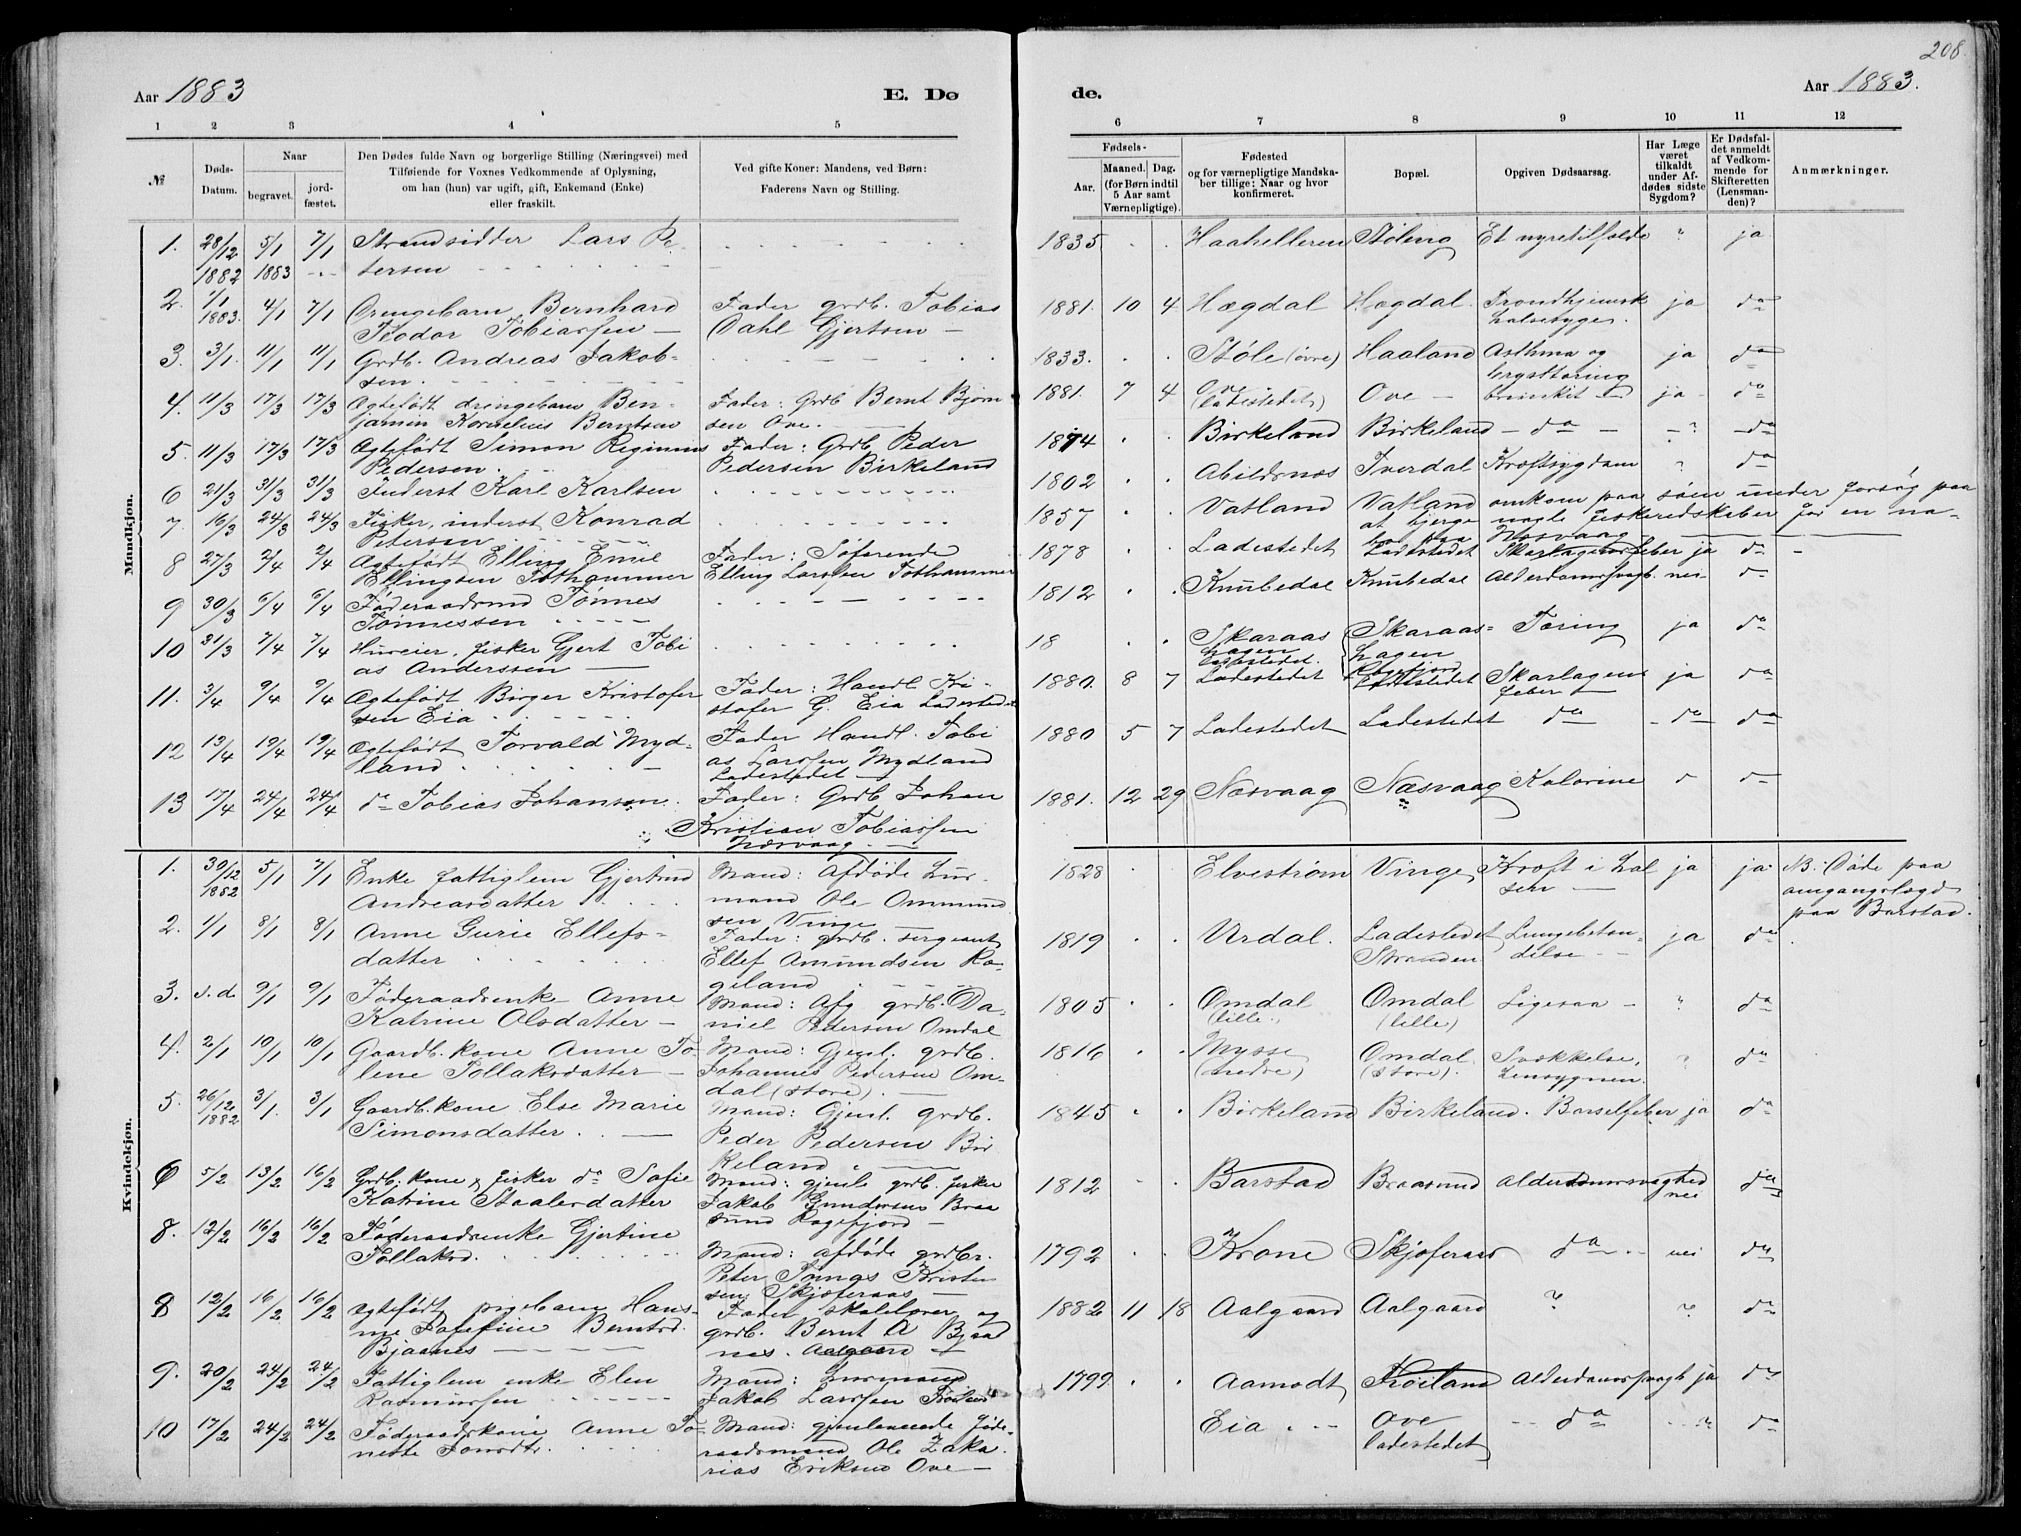 208.
Aar 1883 E. Dø de. Aar 1883.
1 2 3 4 5 6 7 8 9 10 11 12
№ Døds-Datum. Naar begravet. jordfæstet. Den Dødes fulde Navn og borgerlige Stilling (Næringsvei) med Tilføiende for Voxnes Vedkommende af Oplysning, om han (hun) var ugift, gift, Enkemand (Enke) eller fraskilt. Ved gifte Koner: Mandens, ved Børn: Faderens Navn og Stilling. Fødsels- Aar. Maaned. Dag. (for Børn indtil 5 Aar samt Værnepligtige). Fødested og for værnepligtige Mandskaber tillige: Naar og hvor konfirmeret. Bopæl. Opgiven Dødsaarsag. Har Læge været tilkaldt under Afdødes sidste Sygdom? Er Dødsfaldet anmeldt af Vedkommende for Skifteretten (Lensmanden)? Anmærkninger.
Mandkjøn.
1. 28/12 5/1 7/1 Strandsidder Lars Pe- 1835 Haahelleren Støleng Et nyretilfælde " ja
1882 1883 tersen
2. 1/1 1883. 4/1 7/1 Drengebarn Bernhard Fader grdb. Tobias 1881. 10 4 Hægdal Hægdal Trondhjemsk ja do
Teodor Tobiassen Dahl Gjertsen halsesyge.
3. 3/1. 11/1 11/1 Grdb. Andreas Jakob- 1833. Støle (øvre) Haaland Asthma og ja do
sen. brysttæring
4. 11/3 17/3 17/3 Ægtefødt drengebarn Ben- Fader: Grdb Bernt Bjørn 1881. 7 4 Ove (Ladestedet) Ove bronkit ja do
jamin Kornelius Berntsen sen Ove.
5. 11/3 17/3 17/3 Ægtefødt Simon Reginius Fader: Grdb. Peder 1874 Birkeland Birkeland do " do
Pedersen. Pedersen Birkeland
6 21/3 31/3 31/3 Inderst Karl Karlsen 1802 Abildsnæs Iverdal Kræftsygdom " do
7. 16/3 24/3 24/3 Fisker, inderst Konrad 1857 Vatland Vatland omkom paa søen under forsøg paa
Petersen at bjerge nogle fiskeredskaber for en na-
bo paa Næsvaag
8 27/3 2/4 2/4 Ægtefødt Elling Emil Fader: Søfarende 1878 Ladestedet Ladestedet Skarlagensfeber ja do
Ellingsen Tothammer Elling Larssen Tothammer
9 30/3 6/4 6/4 Føderaadsmd Tønnes 1812 Knubedal Knubedal Alderdomssvagh. nei do
Tønnessen
10 31/3 7/4 7/4 Huseier, fisker Gjert Tobi 18 Skaraas Skaraas= Tæring ja do
as Anderssen hagen hagen
Ladestedet. Rægefjord
11. 3/4 9/4 9/4 Ægtefødt Birger Kristofer Fader: Handl. Kri- 1880. 8 7 Ladestedet Ladestedet Skarlagens ja do
sen Eia stofer G. Eia Ladestedet feber
12 13/4 19/4 19/4 Ægtefødt Torvald Myd- Fader Handl. Tobi 1880 5 7 Ladestedet Ladestedet do do do
land as Larssen Mydland
Ladestedet
13 17/4 24/4 24/4 do Tobias Johansen. Fader: Grdb Johan 1881. 12 29 Næsvaag Næsvaag Kolorine d do
Kristian Tobiassen
Næsvaag
Kvindekjøn.
1. 30/12 1882 5/1 7/1 Enke fattiglem Gjertrud Mand: Afdøde Hus- 1828 Elvestrøm Vinge Kræft i hal ja ja NB. Døde paa
Andreasdatter mand Ole Ommund sen omgangslægd
sen Vinge paa Barstad.
2. 1/1 8/1 8/1 Anne Gurie Ellefs= Fader: grdb. sergeant 1819 Urdal. Ladestedet Lungebetæn= ja do
datter Ellef Amundsen Ræ- Stranden delse
geland
3. s. d. 9/1 9/1 Føderaadsenke Anne Mand: Afg grdb. Da- 1805 Omdal Omdal Ligesaa " do
Katrine Olsdatter niel Pedersen Omdal (lille) (lille)
4. 2/1 10/1 10/1 Gaardb. kone Anne To- Mand: Gjenl. grdb. 1816 Mysse Omdal Svækkelse, " do
lene Tollaksdatter Johannes Pedersen Om- (nedre) (store)
dal (store).
5. 26/12 1882 3/1. 3/1 Gaardb. kone Else Marie Mand: Gjenl. grdb. 1845 Birkeland Birkeland. Barselfeber ja do
Simonsdatter. Peder Pedersen Bir
keland
6 5/2 13/2 16/2 Grdb: kone & fisker do Sofie Mand: gjenl. grdb. fisker 1812 Barstad Braasund Alderdomssvaghed nei do
Katrine Staalesdatter Jakob Gundersen Braa
sund Rægefjord
8. 12/2 16/2 16/2 Føderaadsenke Gjertine Mand: afdøde grdbr. 1792 Krone Skjøferaas do nei do
Tollaksd. Peter Tønnes Kristen
sen Skjøferaas
8 12/2 16/2 16/2 Ægtefødt pigebarn Hans- Fader skolelærer og 1882 11 18 Aalgaard Aalgaard ? " do
ine Josefine Berntsd. grdb. Bernt A Bjaa
Bjaanes nes. Aalgaard
9. 20/2 24/2 24/2 Fattiglem enke Elen Mand: husmand 1799 Aamodt Frøiland Alderdomssvagh ja do
Rasmussen Jakob Larssen Frøiland
10 17/2 24/2 24/2 Føderaadskone Anne To- Mand: gjenlevende føde- Eia Ove do " do
nette Jonsdtr. raadsmand Ole Zaka- Ladestedet
rias Eriksen Ove